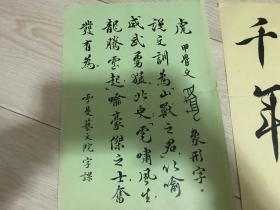 虎 甲骨文 象形字。
说文訓為山獸之君，以喻
威武勇猛，北史虎嘯風生
龍騰雲起，喻豪傑之士奮
發有為。
雲是藝文院字課
千年